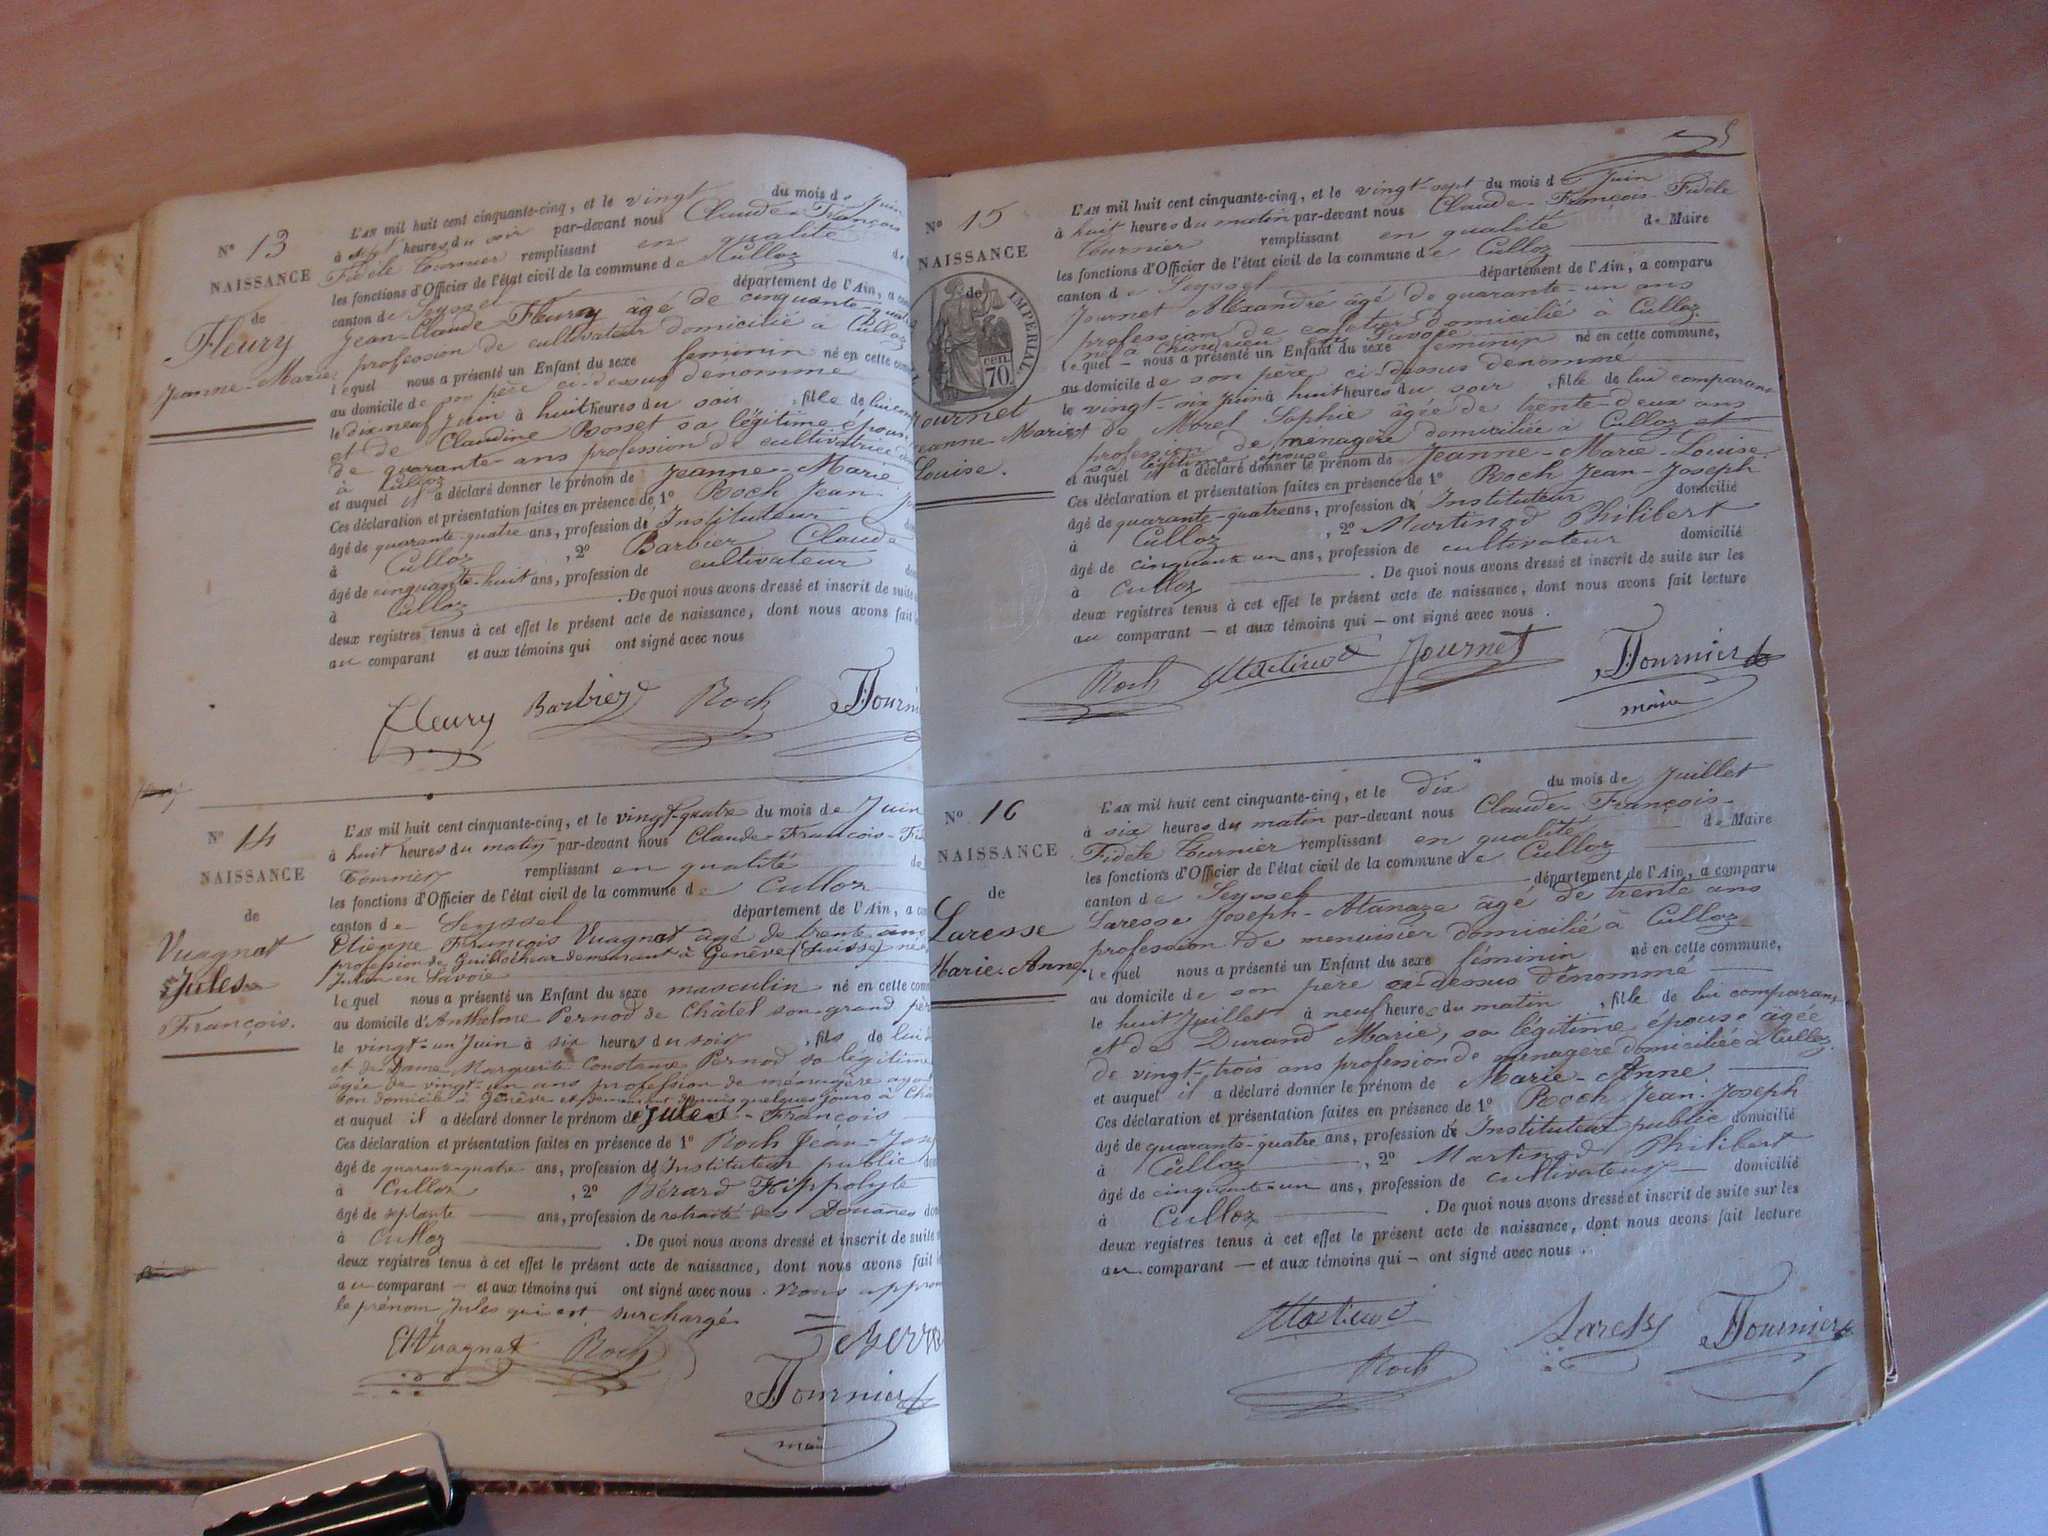 N° 13
NAISSANCE
de
Fleury
Jeanne-Marie
L'AN mil huit cent cinquante-cinq, et le vingt du mois de Juin
à sept heures du soir par-devant nous Claude-François
Fidèle Tournier remplissant en qualité de
les fonctions d'Officier de l'état civil de la commune de Culloz
canton de Seyssel département de l'Ain, a com
Jean-Claude Fleury âgé de cinquante-quatre
profession de cultivateur domicilié à Culloz
lequel nous a présenté un Enfant du sexe feminin né en cette com
au domicile de son père ci-dessus denommé
le dix neuf Juin à huit heures du soir, fille de lui comp
et de Claudine Rosset sa légitime épouse
de quarante ans profession de cultivatrice
à Culloz
et auquel il a déclaré donner le prénom de Jeanne-Marie
Ces déclaration et présentation faites en présence de 1° Roch Jean-
âgé de quarante-quatre ans, profession d' Instituteur
à Culloz, 2° Barbier Claude
âgé de cinquante-huit ans, profession de cultivateur
à Culloz. De quoi nous avons dressé et inscrit de suite
deux registres tenus à cet effet le présent acte de naissance, dont nous avons fait
au comparant et aux témoins qui ont signé avec nous
Fleury Barbier Roch Tourni
N° 14
NAISSANCE
de
Vuagnat
Jules
François.
L'AN mil huit cent cinquante-cinq, et le vingt-quatre du mois de Juin
à huit heures du matin par-devant nous Claude-François-Fi
Tournier remplissant en qualité de
les fonctions d'Officier de l'état civil de la commune de Culloz
canton de Seyssel département de l'Ain, a com
Etienne François Vuagnat âgé de trente ans
profession de Guillocheur demeurant à Genève (Suisse) né à
en Savoie
lequel nous a présenté un Enfant du sexe masculin né en cette com
au domicile d'Anthelme Pernod de Châtel son grand père
le vingt-un Juin à six heures du soir, fils de lui
et de Dame Marguerite Constance Pernod sa légitime
âgée de vingt-un ans profession de ménagère
son domicile à Genève et demeurant depuis quelques jours à
et auquel il a déclaré donner le prénom de Jules-François
Ces déclaration et présentation faites en présence de 1° Roch Jean-Jos
âgé de quarante-quatre ans, profession d' Instituteur public
à Culloz, 2° Bérard Hippolyte
âgé de septante ans, profession de retraité des Douanes
à Culloz. De quoi nous avons dressé et inscrit de suite
deux registres tenus à cet effet le présent acte de naissance, dont nous avons fait
au comparant — et aux témoins qui ont signé avec nous. Nous appro
le prénom Jules qui est surchargé
Vuagnat Roch
Tournier
maire
N° 15
NAISSANCE
de
IMPERIAL
70 cen.
Journet
Jeanne Marie
Louise.
L'AN mil huit cent cinquante-cinq, et le vingt-sept du mois de Juin
à huit heures du matin par-devant nous Claude-François-Fidèle
Tournier remplissant en qualité de Maire
les fonctions d'Officier de l'état civil de la commune de Culloz
canton de Seyssel département de l'Ain, a comparu
Journet Alexandre âgé de quarante-un ans
profession de cafetier domicilié à Culloz
né à Chindrieu en Savoie
lequel — nous a présenté un Enfant du sexe féminin né en cette commune,
au domicile de son père ci-dessus dénommé
le vingt-six Juin à huit heures du soir, fille de lui comparant
et de Morel Sophie âgée de trente-deux ans
profession de ménagère domiciliée à Culloz et
sa légitime épouse
et auquel il a déclaré donner le prénom de Jeanne-Marie-Louise.
Ces déclaration et présentation faites en présence de 1° Roch Jean-Joseph
âgé de quarante-quatre ans, profession d' Instituteur domicilié
à Culloz, 2° Martinod Philibert
âgé de cinquante un ans, profession de cultivateur domicilié
à Culloz. De quoi nous avons dressé et inscrit de suite sur les
deux registres tenus à cet effet le présent acte de naissance, dont nous avons fait lecture
au comparant — et aux témoins qui — ont signé avec nous.
Roch Martinod Journet Tournier
maire
N° 16
NAISSANCE
de
Laresse
Marie-Anne.
L'AN mil huit cent cinquante-cinq, et le dix du mois de Juillet
à six heures du matin par-devant nous Claude-François-
Fidèle Tournier remplissant en qualité de Maire
les fonctions d'Officier de l'état civil de la commune de Culloz
canton de Seyssel département de l'Ain, a comparu
Laresse Joseph-Atanaze âgé de trente ans
profession de menuisier domicilié à Culloz
lequel nous a présenté un Enfant du sexe féminin né en cette commune,
au domicile de son père ci-dessus dénommé
le huit Juillet à neuf heures du matin, fille de lui comparant
et de Durand Marie, sa légitime épouse âgée
de vingt-trois ans profession de ménagère domiciliée à Culloz.
et auquel il a déclaré donner le prénom de Marie-Anne
Ces déclaration et présentation faites en présence de 1° Roch Jean-Joseph
âgé de quarante-quatre ans, profession d' Instituteur public domicilié
à Culloz, 2° Martinod Philibert
âgé de cinquante-un ans, profession de cultivateur domicilié
à Culloz. De quoi nous avons dressé et inscrit de suite sur les
deux registres tenus à cet effet le présent acte de naissance, dont nous avons fait lecture
au comparant — et aux témoins qui — ont signé avec nous.
Martinod
Roch Tournier